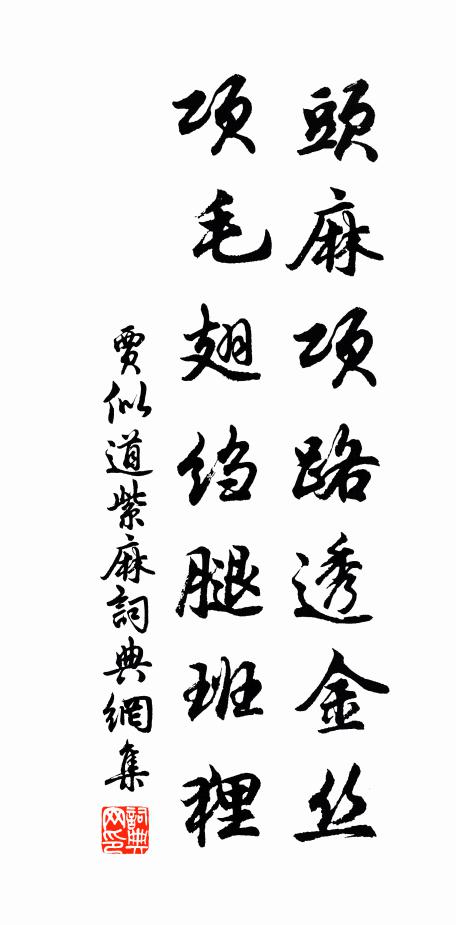 頭麻項路透金丝
項毛翅绉腿班狸
賈似道紫麻詞典網集
詞典网印